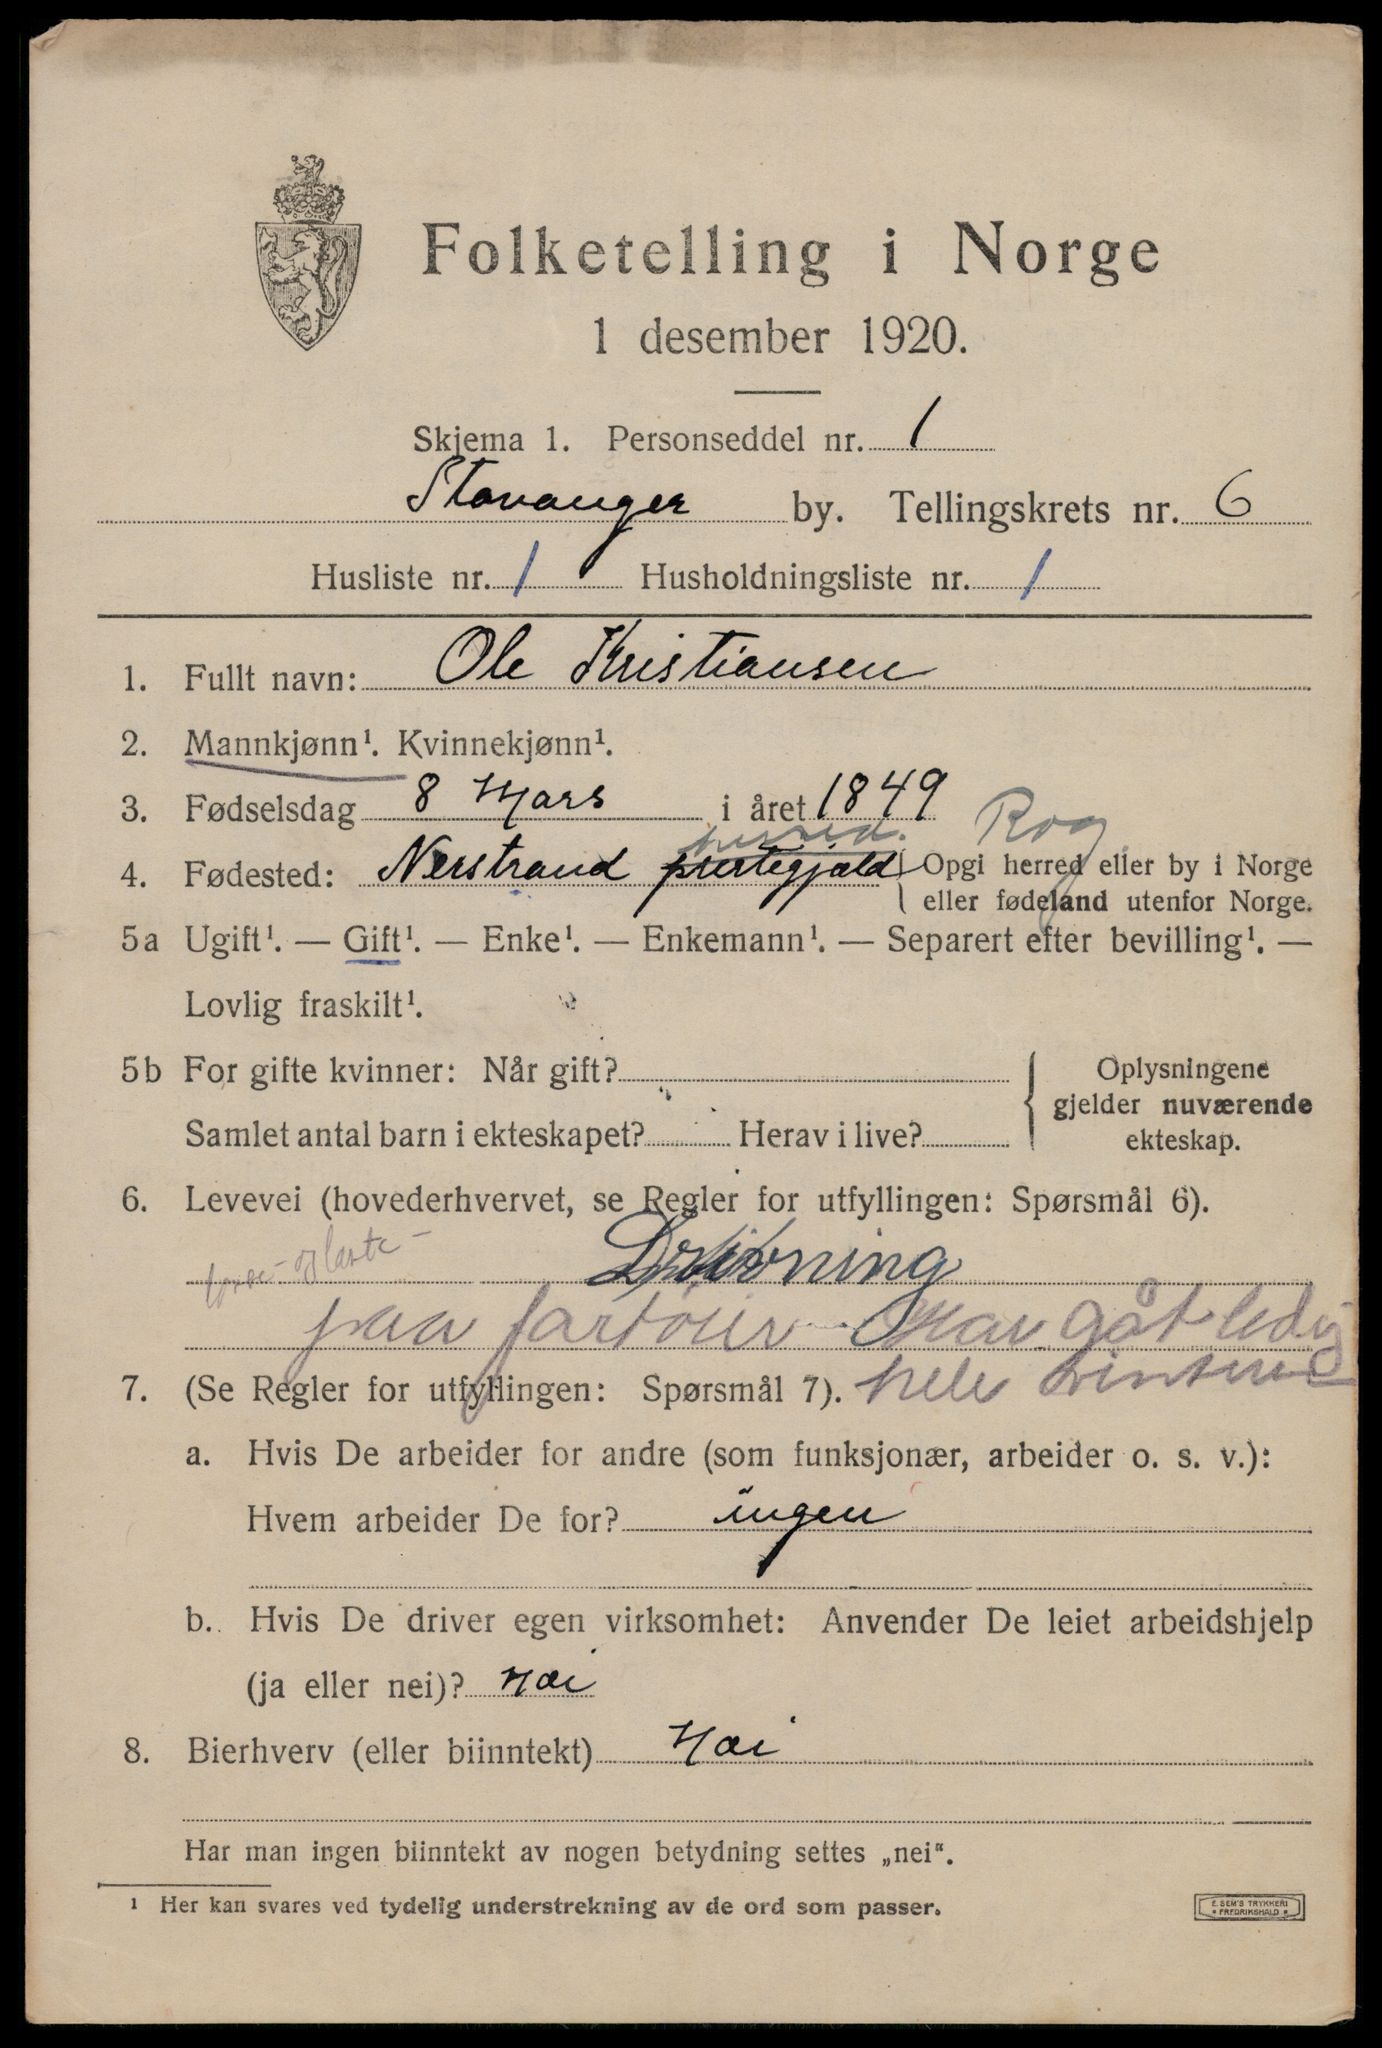 Folketelling i Norge
1 desember 1920.
Skjema 1. Personseddel nr. 1
Stavanger by. Tellingskrets nr. 6
Husliste nr. 1 Husholdningsliste nr. 1
1. Fullt navn: Ole Kristiansen
2. Mannkjønn¹. Kvinnekjønn¹.
3. Fødselsdag 8 Mars i året 1849
herred. Rog
4. Fødested: Nerstrand prestegjæld { Opgi herred eller by i Norge
eller fødeland utenfor Norge.
5a Ugift¹. — Gift¹. — Enke¹. — Enkemann¹. — Separert efter bevilling¹. —
Lovlig fraskilt¹.
5b For gifte kvinner: Når gift? { Oplysningene
gjelder nuværende
Samlet antal barn i ekteskapet? Herav i live? ekteskap.
6. Levevei (hovederhvervet, se Regler for utfyllingen: Spørsmål 6).
og laste-
paa fartøier Har gåt ledig
7. (Se Regler for utfyllingen: Spørsmål 7). hele vinteren
a. Hvis De arbeider for andre (som funksjonær, arbeider o. s. v.):
Hvem arbeider De for? ingen
b. Hvis De driver egen virksomhet: Anvender De leiet arbeidshjelp
(ja eller nei)? Nei
8. Bierhverv (eller biinntekt) Nei
Har man ingen biinntekt av nogen betydning settes „nei".
¹ Her kan svares ved tydelig understrekning av de ord som passer.
E. SEM'S TRYKKERI
* FREDRIKSHALD *